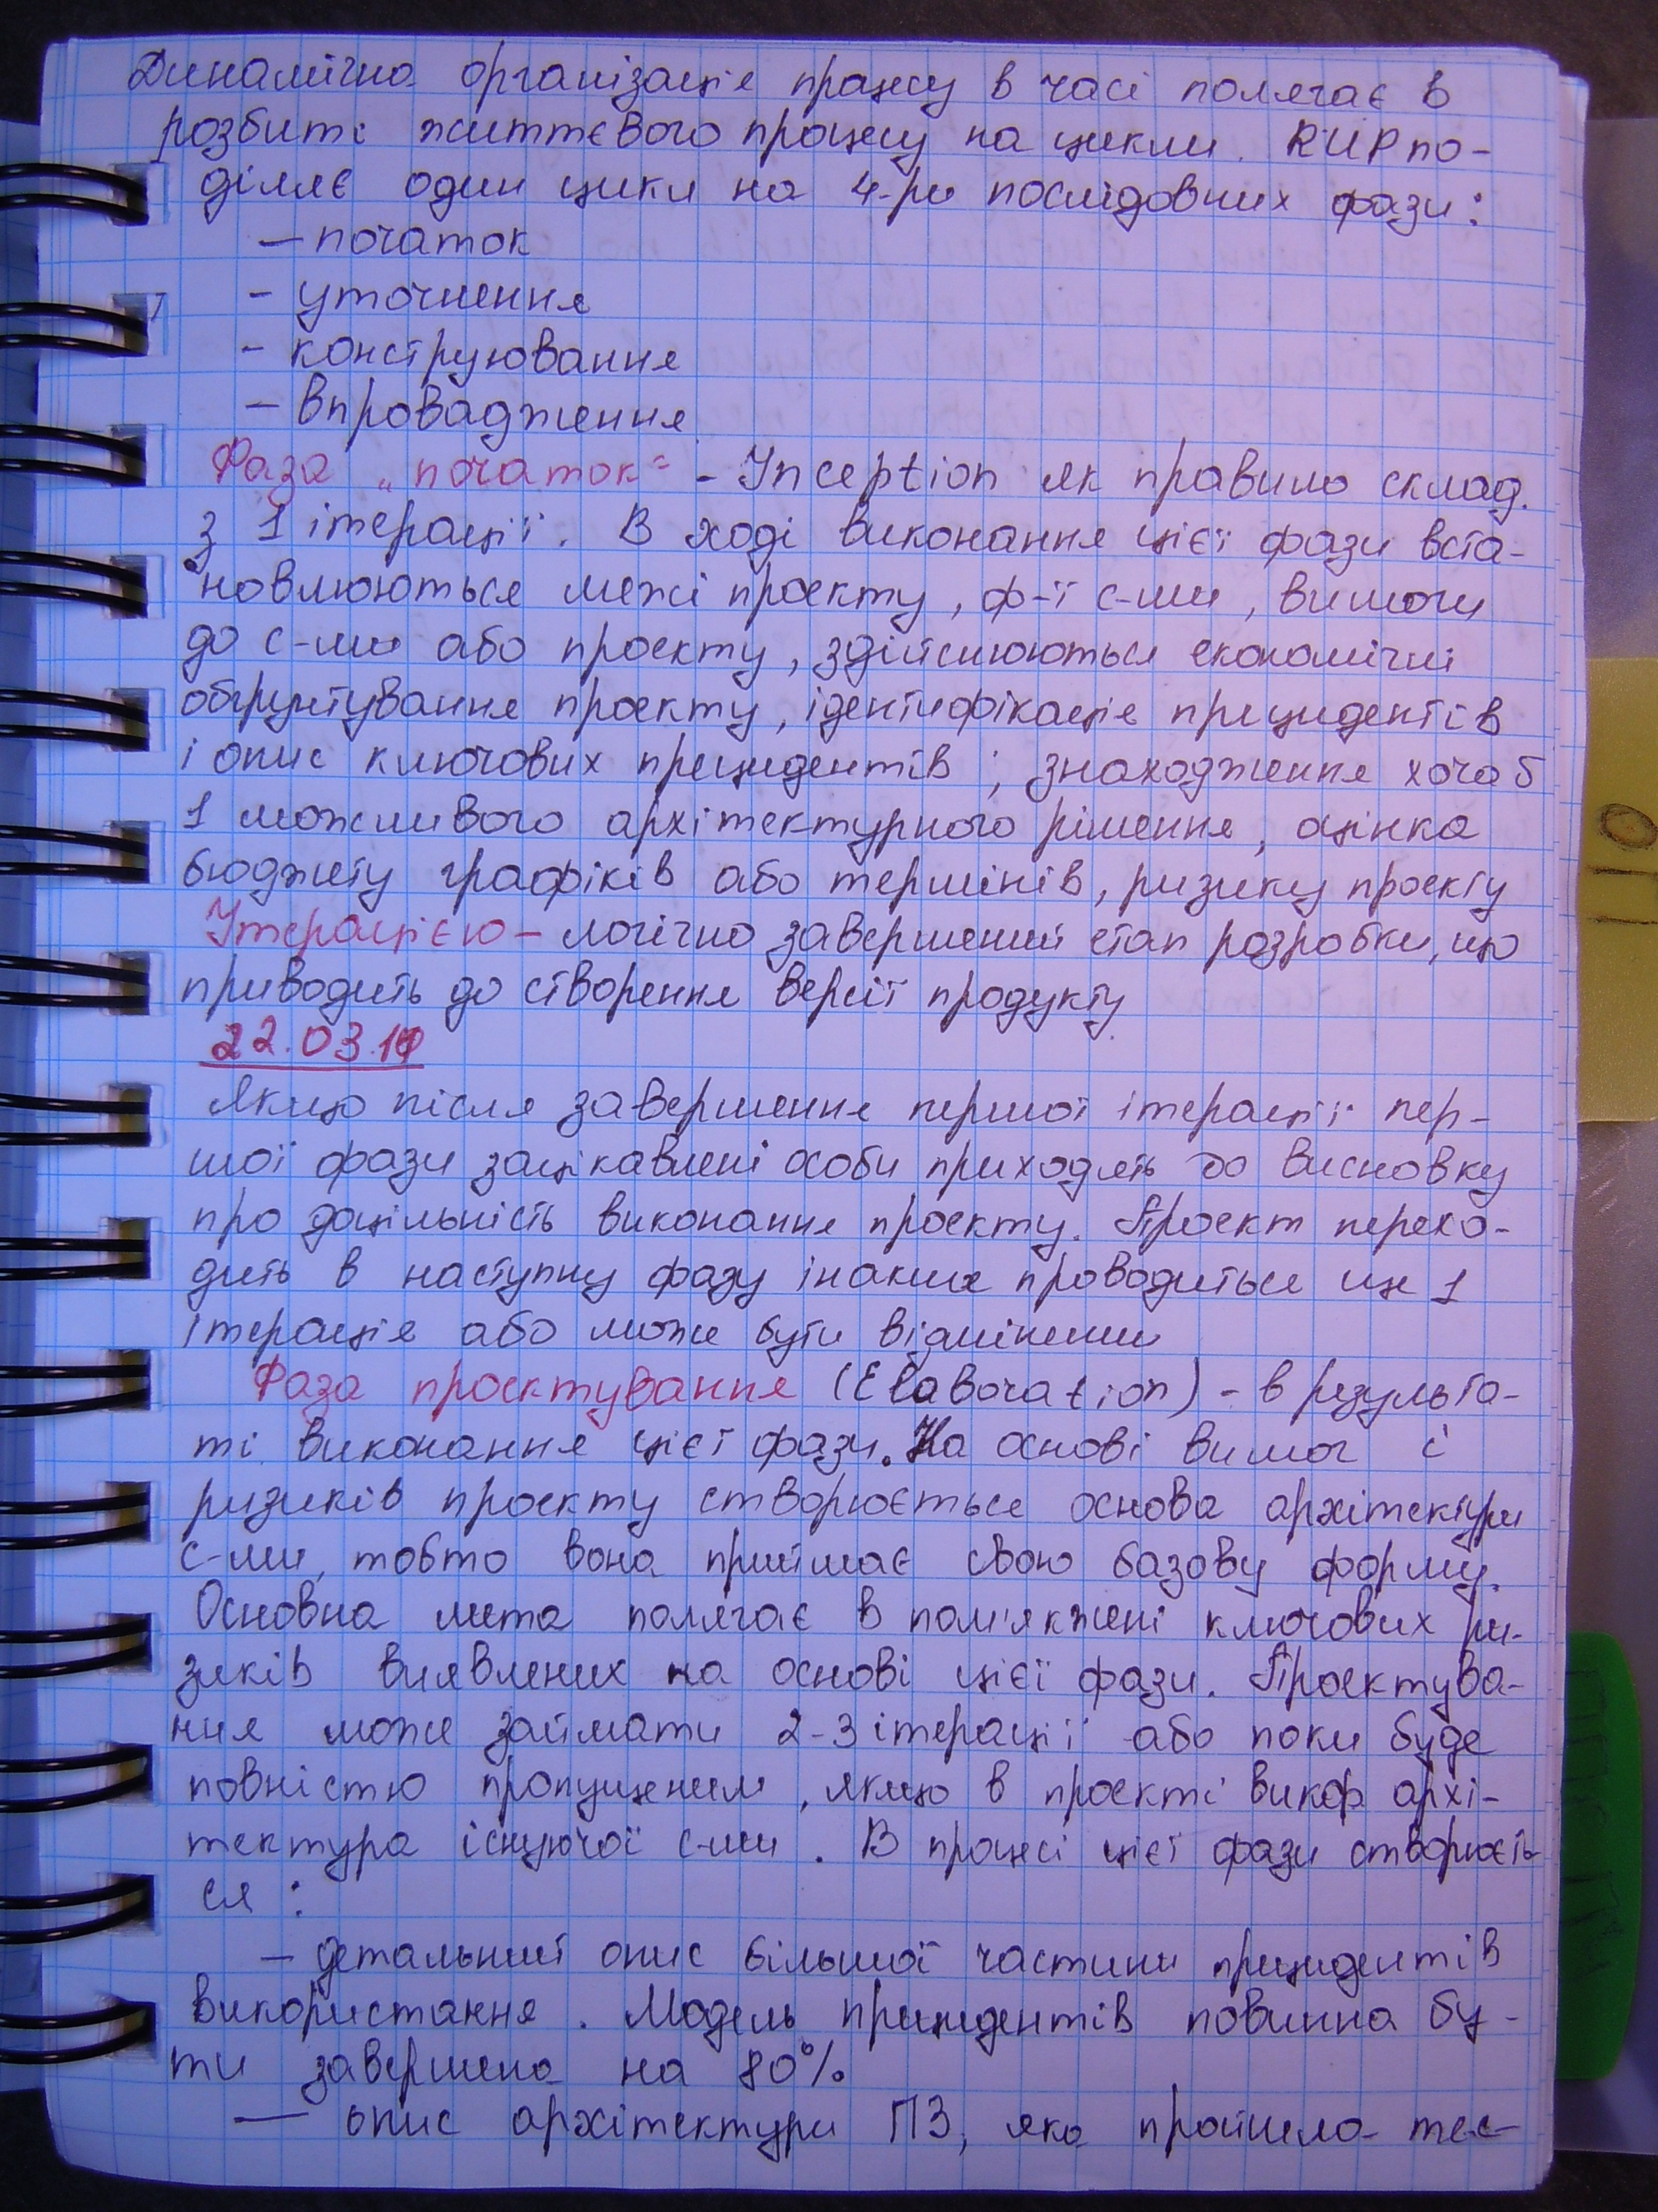 Динамічна організація процесу в часі полягає в
розбиті життєвого процесу на цикли. RUP по-
діляє один цикл на 4-ри послідовних фази:
— початок
- уточнення
- конструювання
- впровадження
Фаза „початок" - Inception як правило склад.
з 1 ітерації. В ході виконання цієї фази вста-
новлюються межі проекту, ф-ї с-ми, вимоги
до с-ми або проекту, здійснюються економічні
обгрунтування проекту, ідентифікація прецидентів
і опис ключових прецидентів; знаходження хочаб
1 можливого архітектурного рішення, оцінка
бюджету графіків або термінів, ризику проекту
Ітерацією – логічно завершений етап розробки, що
приводить до створення версії продукту.
22.03.
Якщо після завершення першої ітерації пер-
шої фази зацікавлені особи приходять до висновку
про доцільність виконання проекту. Проект перехо-
дить в наступну фазу інакше проводиться ще 1
ітерація або може бути відміненим
Фаза проектування (Elaboration) - в результа-
ті виконання цієї фази. На основі вимог і
ризиків проекту створюється основа архітектури
с-ми, тобто вона приймає свою базову форму.
Основна мета полягає в пом'якжені ключових ри-
зиків виявлених на основі цієї фази. Проектува-
ння може займати 2-3 ітерації або поки буде
повністю пропущеним, якщо в проекті викор архі-
тектура існуючої с-ми. В процесі цієї фази створюєть
ся :
— детальний опис більшої частини прецидентів
використання. Модель прецидентів повинна бу-
ти завершена на 80%
— опис архітектури ПЗ, яка пройшла тес-
110